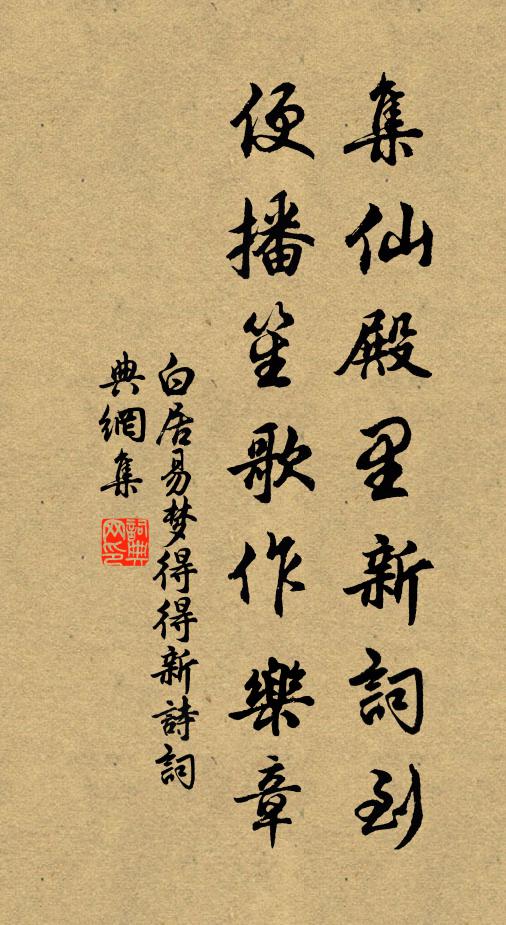 集仙殿里新詞到
便播笙歌作樂章
白居易梦得得新詩詞
典網集
詞典
网印